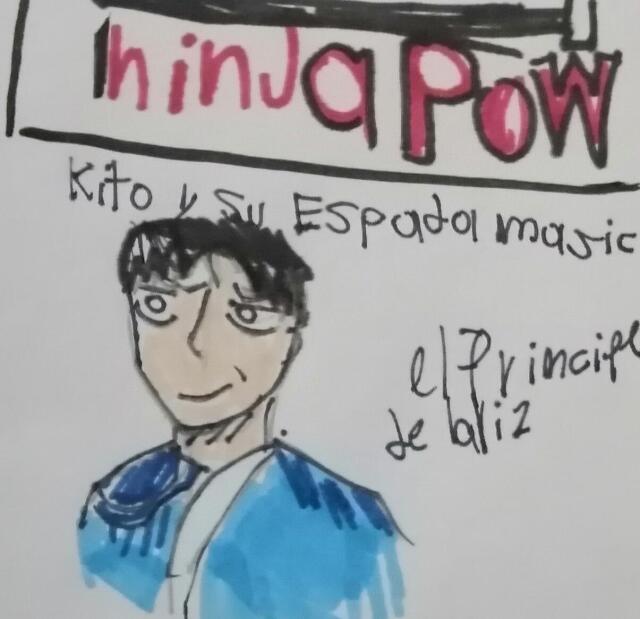 ninja POW
Kito y su Espada magic
el Principe
de la liz